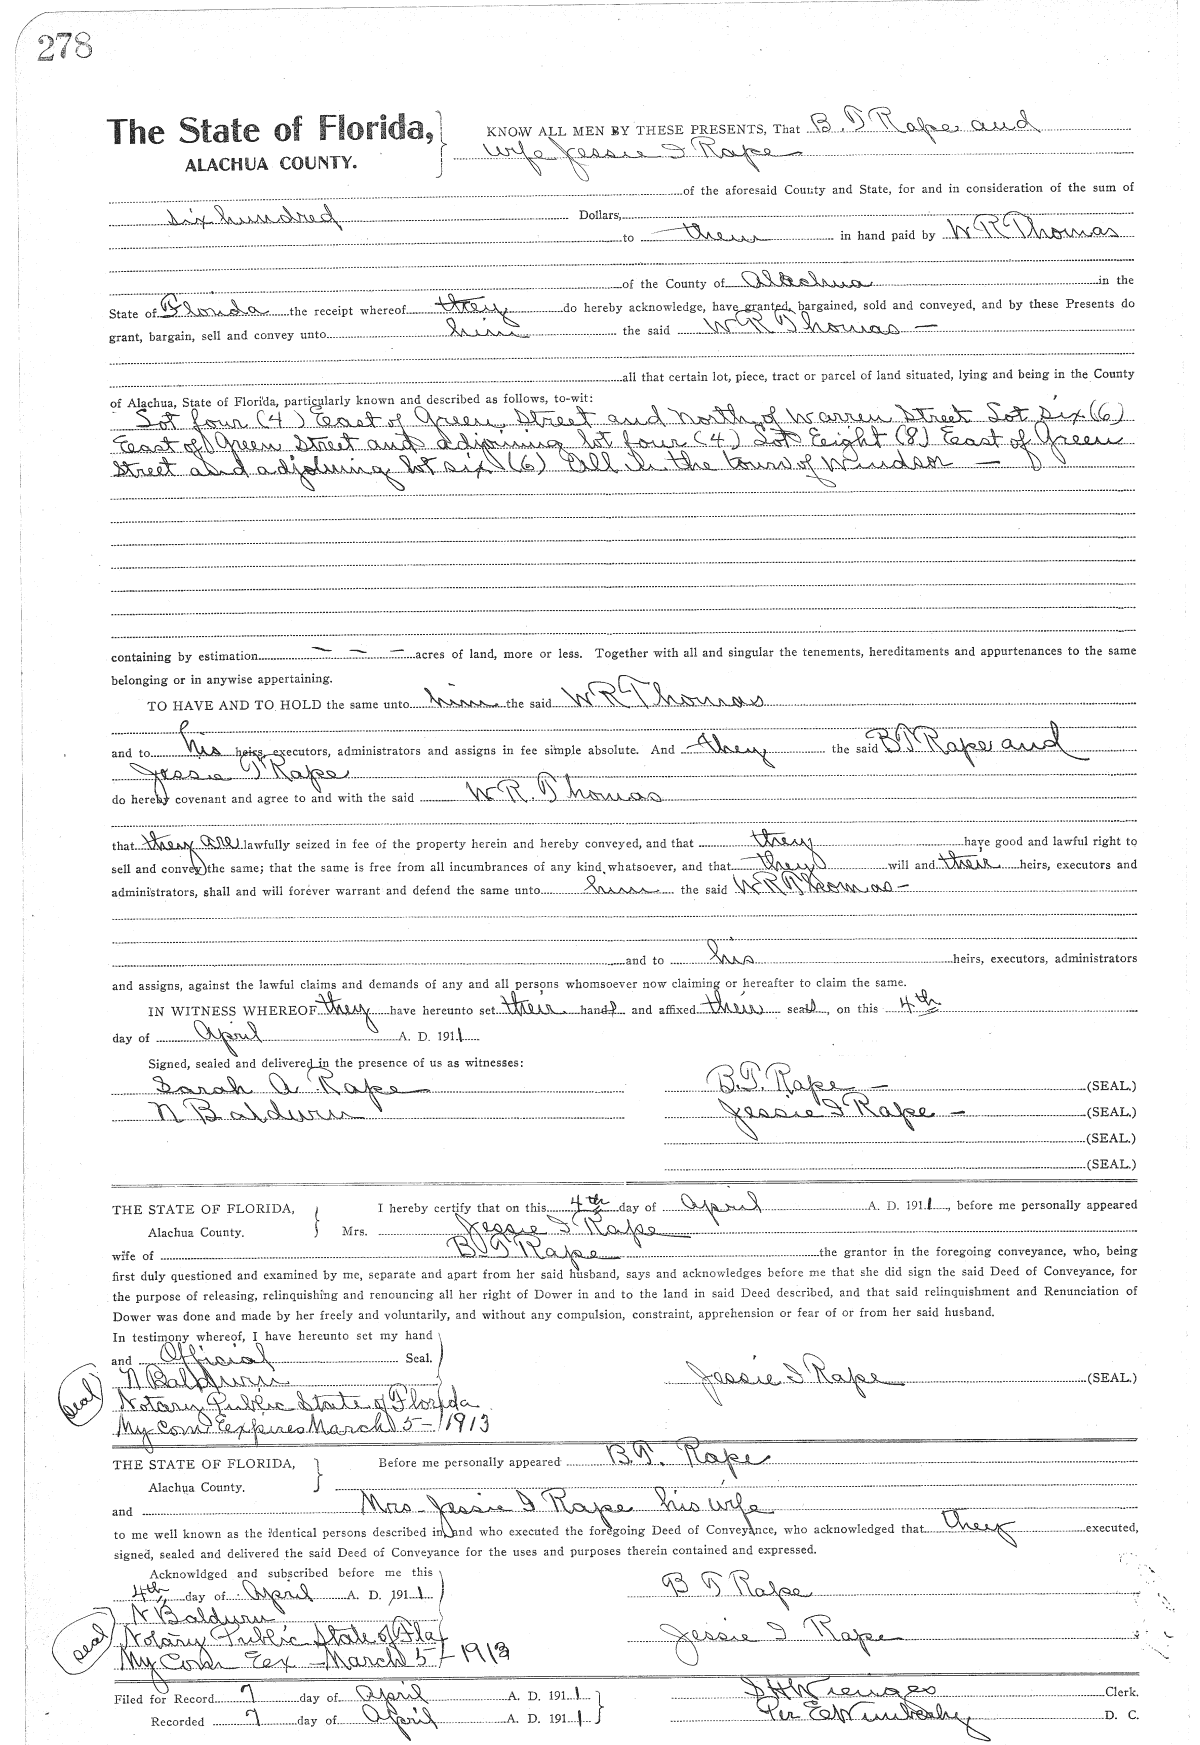 278
The State of Florida, KNOW ALL MEN BY THESE PRESENTS, That B. T Rape and
ALACHUA COUNTY. wife Jessie I Rape
of the aforesaid County and State, for and in consideration of the sum of
six hundred Dollars,
to them in hand paid by W R Thomas
of the County of Alachua in the
State of Florida the receipt whereof they do hereby acknowledge, have granted, bargained, sold and conveyed, and by these Presents do
grant, bargain, sell and convey unto him the said W R Thomas —
all that certain lot, piece, tract or parcel of land situated, lying and being in the County
of Alachua, State of Florida, particularly known and described as follows, to-wit:
Lot four (4) East of Green Street and North of Warren Street Lot six (6)
East of Green Street and adjoining lot four (4) Lot Eight (8) East of Green
Street and adjoining lot six (6) All in the town of Windsor —
containing by estimation — — — acres of land, more or less. Together with all and singular the tenements, hereditaments and appurtenances to the same
belonging or in anywise appertaining.
TO HAVE AND TO HOLD the same unto him the said W R Thomas
and to his heirs, executors, administrators and assigns in fee simple absolute. And they the said B T Rape and
Jessie I Rape
do hereby covenant and agree to and with the said W R. Thomas
that they are lawfully seized in fee of the property herein and hereby conveyed, and that they have good and lawful right to
sell and convey the same; that the same is free from all incumbrances of any kind whatsoever, and that they will and their heirs, executors and
administrators, shall and will forever warrant and defend the same unto him the said W R Thomas —
and to his heirs, executors, administrators
and assigns, against the lawful claims and demands of any and all persons whomsoever now claiming or hereafter to claim the same.
IN WITNESS WHEREOF they have hereunto set their hands and affixed their seals, on this 4th
day of April A. D. 1911
Signed, sealed and delivered in the presence of us as witnesses:
Sarah A Rape B.T. Rape — (SEAL.)
N Baldwin Jessie I Rape — (SEAL.)
(SEAL.)
(SEAL.)
THE STATE OF FLORIDA, I hereby certify that on this 4th day of April A. D. 1911, before me personally appeared
Alachua County. Mrs. Jessie I Rape
wife of B. T Rape the grantor in the foregoing conveyance, who, being
first duly questioned and examined by me, separate and apart from her said husband, says and acknowledges before me that she did sign the said Deed of Conveyance, for
the purpose of releasing, relinquishing and renouncing all her right of Dower in and to the land in said Deed described, and that said relinquishment and Renunciation of
Dower was done and made by her freely and voluntarily, and without any compulsion, constraint, apprehension or fear of or from her said husband.
In testimony whereof, I have hereunto set my hand
and Official Seal.
seal N Baldwin Jessie I Rape (SEAL.)
Notary Public State of Florida
My Com Expires March 5 — 1913
THE STATE OF FLORIDA, Before me personally appeared B.T. Rape
Alachua County.
and Mrs Jessie I Rape his wife
to me well known as the identical persons described in and who executed the foregoing Deed of Conveyance, who acknowledged that they executed,
signed, sealed and delivered the said Deed of Conveyance for the uses and purposes therein contained and expressed.
Acknowldged and subscribed before me this
4th day of April A. D. 1911 B T Rape
N Baldwin
seal Notary Public State of Fla Jessie I Rape
My Com Eex — March 5 — 1913
Filed for Record 7 day of April A. D. 1911 S H Wienges Clerk.
Recorded 7 day of April A. D. 1911 Per E Wimberly D. C.